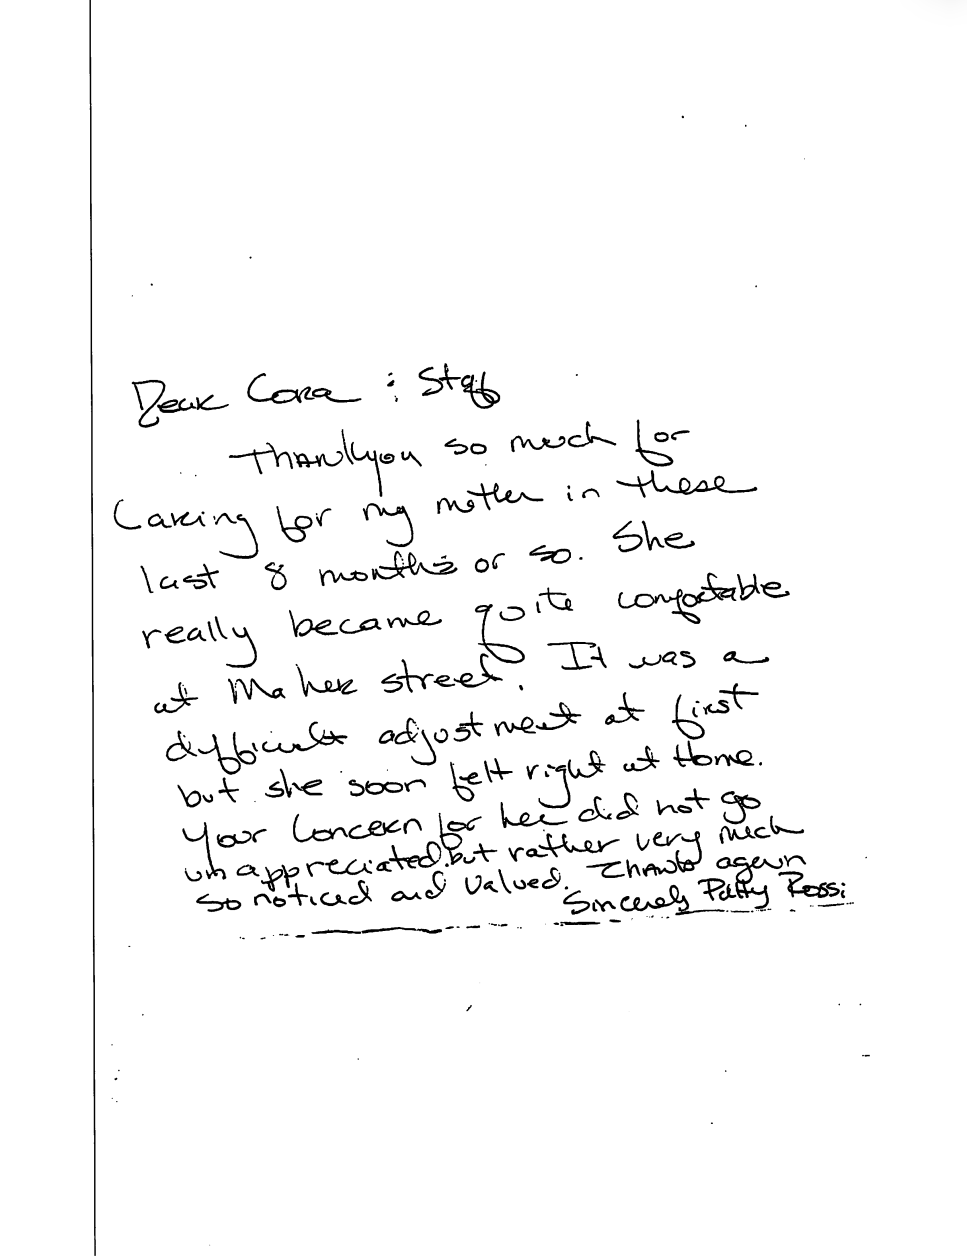 Dear Cora : Staff
Thankyou so much for
Caring for my mother in these
last 8 months or so. She
really became quite comfortable
at Maher street. It was a
difficult adjustment at first
but she soon felt right at Home.
Your Concern for her did not go
unappreciated, but rather very much
so noticed and valued. Thanks again
Sincerely Patty Rossi